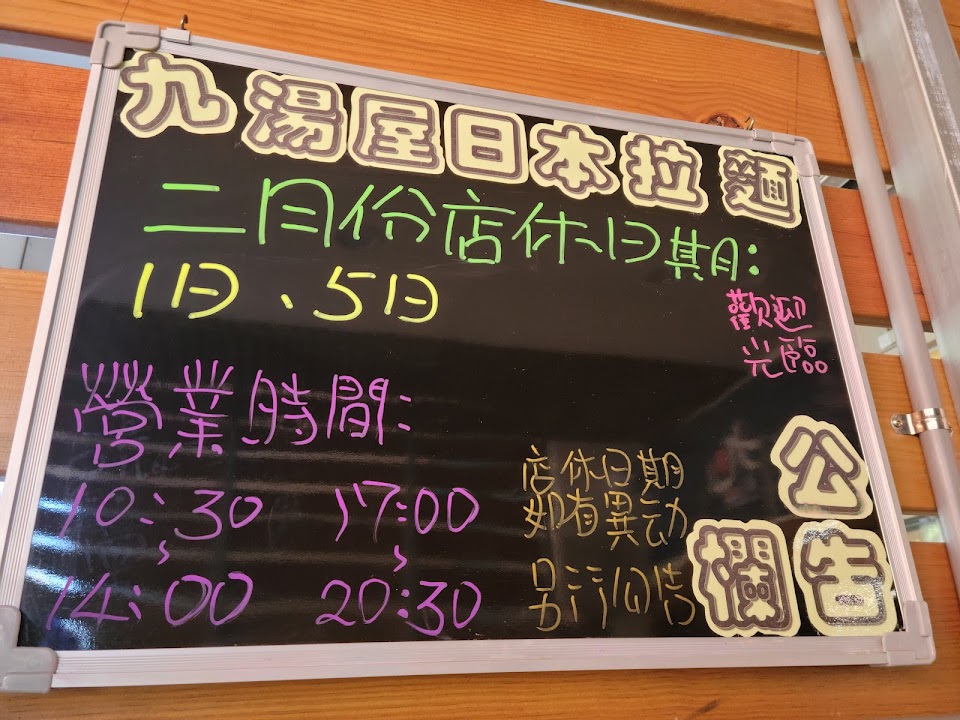 九湯屋日本拉麵
二月份店休日期:
1日、5日
歡迎
光臨
營業時間:
10:30 17:00
~ ~
14:00 20:30
店休日期
如有異动
另行公告
公
告欄